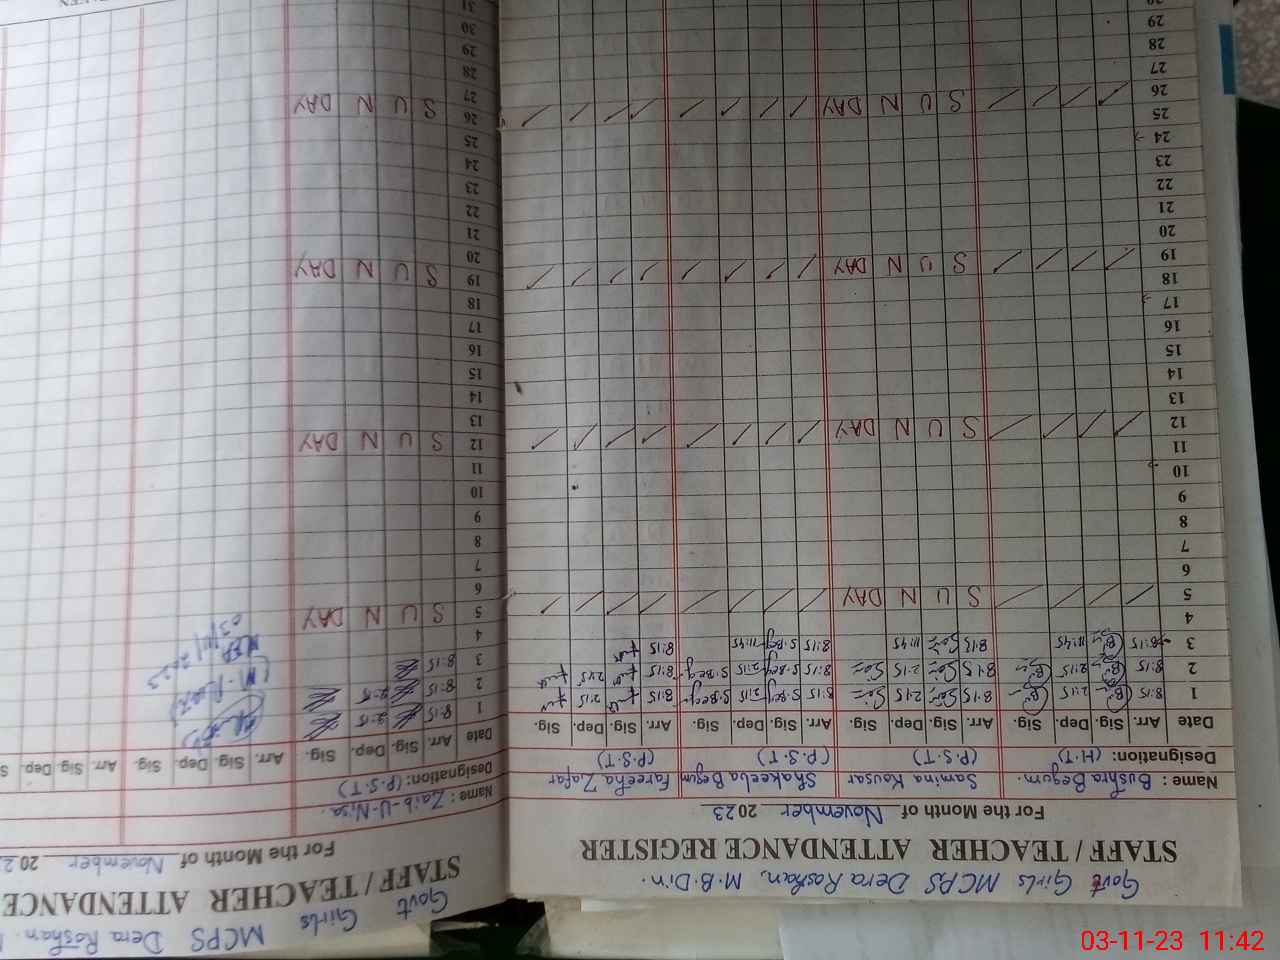 Govt Girls MCPS Dera Roshan, M.B.Din.
STAFF / TEACHER ATTENDANCE REGISTER
For the Month of November 2023
Name : Bushra Begum. Samina Kousar Shakeela Begum Fareeha Zafar
Designation: (H.T) (P.S.T) (P.S.T) (P.S.T)
Date Arr. Sig. Dep. Sig. Arr. Sig. Dep. Sig. Arr. Sig. Dep. Sig. Arr. Sig. Dep. Sig.
1 8:15 2:15 8:15 2:15 8:15 S.Beg 2:15 S.Beg 8:15 2:15
2 8:15 2:15 8:15 2:15 8:15 S.Beg 2:15 S.Beg 8:15 2:15
3 8:15 11:45 8:15 11:45 8:15 S.Beg 11:45 8:15
4
5 S U N DAY
6
7
8
9
10
11
12 S U N DAY
13
14
15
16
17
18
19 S U N DAY
20
21
22
23
24
25
26 S U N DAY
27
28
29
Govt Girls MCPS Dera Roshan.
STAFF / TEACHER ATTENDANCE
For the Month of November 202
Name : Zaib-U-Nisa.
Designation: (P.S.T)
Date Arr. Sig. Dep. Sig. Arr. Sig. Dep. Sig. Arr. Sig. Dep. S
1 8:15 2:15
2 8:15 2:15
3 8:15
03/11/2023
4
5 S U N DAY
6
7
8
9
10
11
12 S U N DAY
13
14
15
16
17
18
19 S U N DAY
20
21
22
23
24
25
26 S U N DAY
27
28
29
30
31
03-11-23 11:42